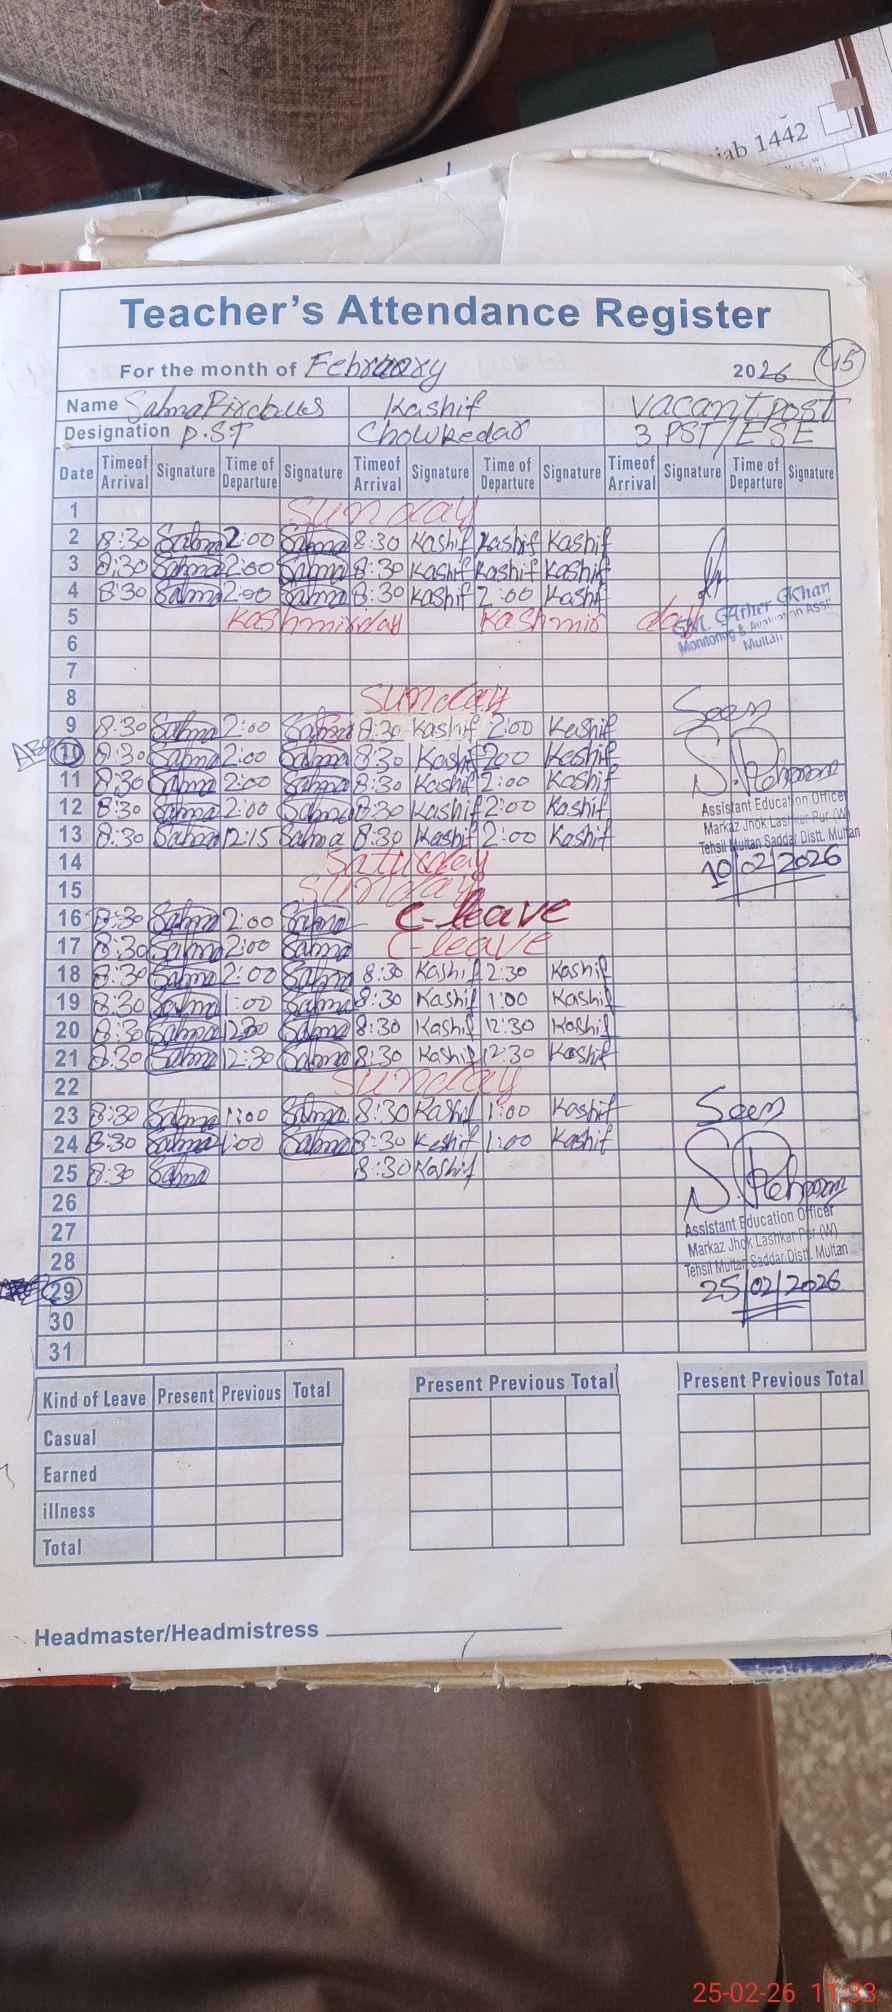 jab 1442
Teacher's Attendance Register
For the month of February 2026 45
Name Salma Kashif vacant post
Designation P.ST Chowkedar 3 PST/ESE
Date Timeof Arrival Signature Time of Departure Signature Timeof Arrival Signature Time of Departure Signature Timeof Arrival Signature Time of Departure Signature
1 Sunday
2 8:30 Salma 2:00 Salma 8:30 Kashif Kashif Kashif
3 8:30 Salma 2:00 Salma 8:30 Kashif Kashif Kashif
4 8:30 Salma 2:00 Salma 8:30 Kashif 2:00 Kashif
5 Kashmirday Kashmir day
Khan
Monitoring & Evaluation Asst
Multan
6
7
8 Sunday
9 8:30 Salma 2:00 Salma 8:30 Kashif 2:00 Kashif
Seen
10 8:30 Salma 2:00 Salma 8:30 Kashif 200 Kashif
11 8:30 Salma 2:00 Salma 8:30 Kashif 2:00 Kashif
12 8:30 Salma 2:00 Salma 8:30 Kashif 2:00 Kashif
Assistant Education Officer
Markaz Jhok Lashkar Pur (W)
13 8:30 Salma 12:15 Salma 8:30 Kashif 2:00 Kashif
Tehsil Multan Saddar Distt. Multan
14 Saturday
10/02/2026
15 Sunday
16 8:30 Salma 2:00 Salma C-leave
17 8:30 Salma 2:00 Salma C-leave
18 8:30 Salma 2:00 Salma 8:30 Kashif 2:30 Kashif
19 8:30 Salma 1:00 Salma 8:30 Kashif 1:00 Kashif
20 8:30 Salma 1230 Salma 8:30 Kashif 12:30 Kashif
21 8:30 Salma 12:30 Salma 8:30 Kashif 12:30 Kashif
22 Sunday
23 8:30 Salma 1:00 Salma 8:30 Kashif 1:00 Kashif
Seen
24 8:30 Salma 1:00 Salma 8:30 Kashif 1:00 Kashif
25 8:30 Salma 8:30 Kashif
26
27
Assistant Education Officer
Markaz Jhok Lashkar Pur (W)
28
Tehsil Multan Saddar Distt. Multan
29
25/02/2026
30
31
Kind of Leave Present Previous Total Present Previous Total Present Previous Total
Casual
Earned
illness
Total
Headmaster/Headmistress
25-02-26 11:33